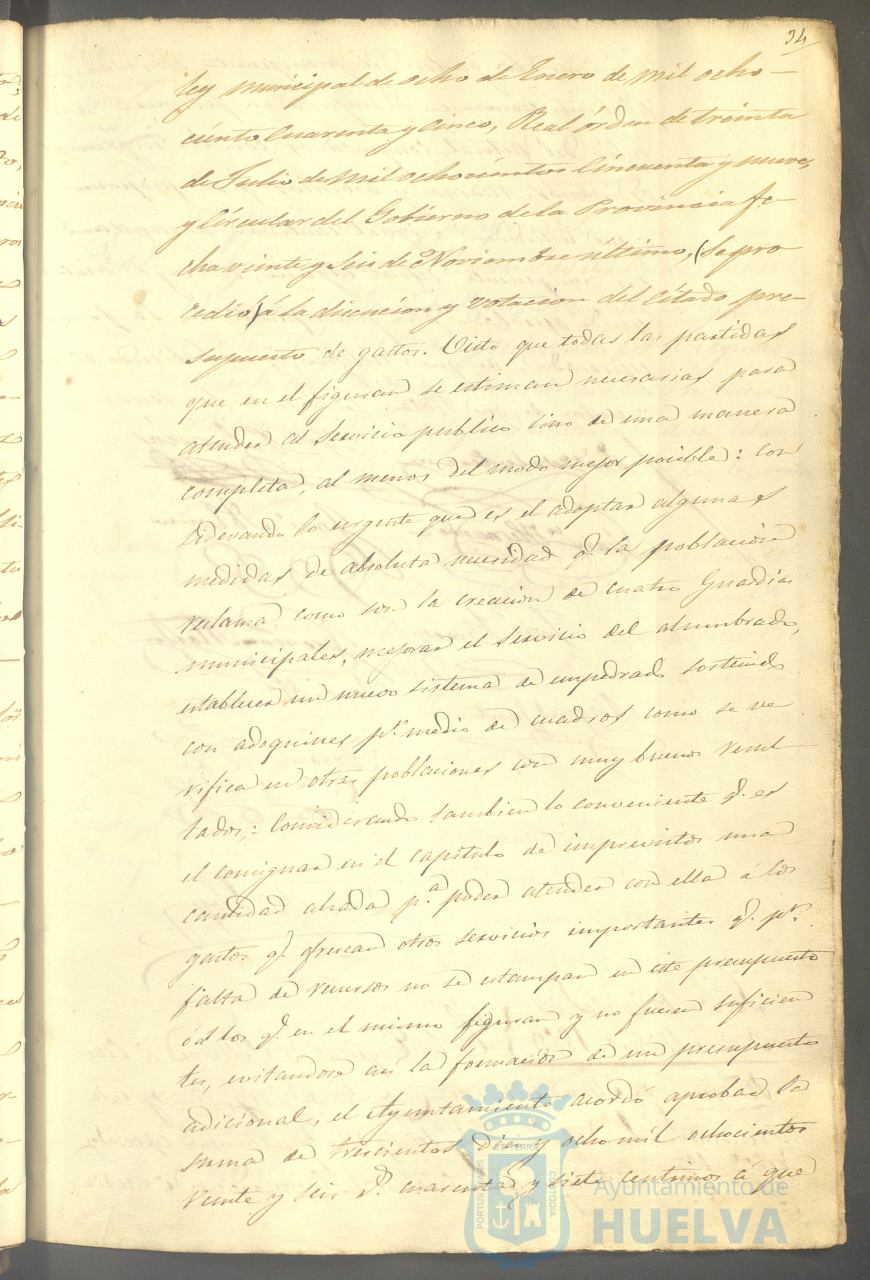 34
ley municipal de ocho de Enero de mil ocho-
ciento Cuarenta y Cinco, Real órden de treinta
de Julio de mil ochocientos Cincuenta y nueve,
y Circular del Gobierno de la Provincia fe-
cha veinte y Seis de Noviembre último, (Se pro
cedió) á la discucion y votacion del citado pre-
supuesto de gastos. Visto que todas las partidas
que en el figuran se estiman necesarias para
atender al Servicio publico sino de una manera
completa, al menos del modo mejor posible: Con
siderando lo urgente que es el adoptar algunas
medidas de absoluta necesidad q.e la poblacion
reclama como son la creacion de cuatro Guardias
municipales, mejorar el Servicio del alumbrado,
establecer un nuevo sistema de empedrado sostenido
con adoquines p.r medio de cuadros como se ve
rifica en otras poblaciones con muy buenos resul
tados: Considerando tambien lo conveniente q.e es
el consignar en el capitulo de imprevistos una
cantidad alzada p.a poder atender con ella á los
gastos q.e ofrecan otros servicios importantes q.e p.r
falta de recursos no se estampan en este presupuesto
ó á los q.e en el mismo figuran y no fuesen suficien
tes, evitandose asi la formacion de un presupuesto
adicional, el Ayuntamiento acordó aprobar la
suma de trescientos diez y ocho mil ochocientos
veinte y seis r.s cuarenta y siete centimos á que
PORTUS MARIS
ET TERRÆ
CUSTODIA
Ayuntamiento de
HUELVA